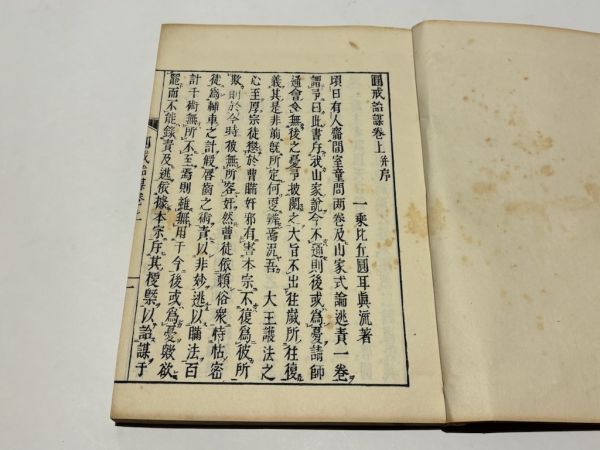 圓戒詒謀卷上并序
一乘比丘圓耳眞流著
頃日有人齎闇室童問两卷及山家式論逃責一卷
謂予曰此書斥戒山家說今不通則後或爲憂請師
通會令無後之憂予披閱之大旨不出往歲所往復
義其是非前旣所定何更辨焉況吾 大王護法之
心至厚宗徒懲於曹瞞奸邪有害本宗不復爲彼所
欺則於今時彼無所容奸然曹徒依賴俗衆恃怙密
徒爲輔車之計假唇齒之術責以非妙逃以瞞法百
計千術無所不至焉則雖無用于今後或爲憂歟欲
罷而不能錄責及逃依據本宗斥其梗槩以詒謀于
圓戒詒謀卷上
一